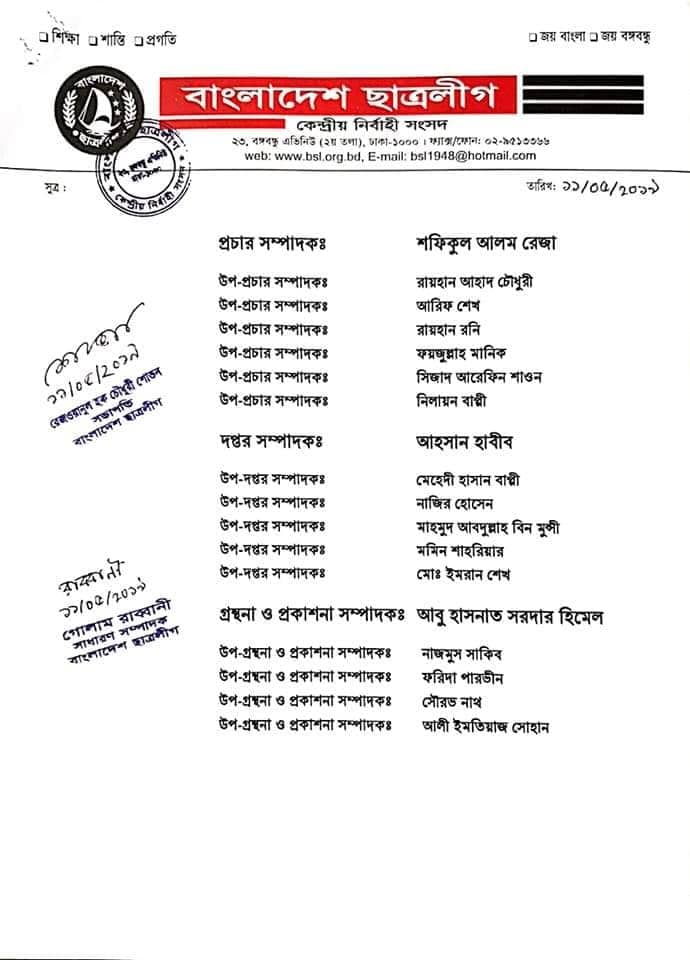 শিক্ষা শান্তি প্রগতি
জয় বাংলা জয় বঙ্গবন্ধু
বাংলাদেশ
ছাত্রলীগ
বাংলাদেশ ছাত্রলীগ
কেন্দ্রীয় নির্বাহী সংসদ
২৩, বঙ্গবন্ধু এভিনিউ (২য় তলা), ঢাকা-১০০০ । ফ্যাক্স/ফোন: ০২-৯৫১৩৩৬৬
web: www.bsl.org.bd, E-mail: bsl1948@hotmail.com
বাংলাদেশ ছাত্রলীগ
কেন্দ্রীয় নির্বাহী সংসদ
সূত্র :
তারিখ: ১১/০৫/২০১৯
প্রচার সম্পাদকঃ শফিকুল আলম রেজা
উপ-প্রচার সম্পাদকঃ রায়হান আহাদ চৌধুরী
উপ-প্রচার সম্পাদকঃ আরিফ শেখ
উপ-প্রচার সম্পাদকঃ রায়হান রনি
উপ-প্রচার সম্পাদকঃ ফয়জুল্লাহ মানিক
উপ-প্রচার সম্পাদকঃ সিজাদ আরেফিন শাওন
উপ-প্রচার সম্পাদকঃ নিলায়ন বাপ্পী
১১/০৫/২০১৯
রেজওয়ানুল হক চৌধুরী শোভন
সভাপতি
বাংলাদেশ ছাত্রলীগ
দপ্তর সম্পাদকঃ আহসান হাবীব
উপ-দপ্তর সম্পাদকঃ মেহেদী হাসান বাপ্পী
উপ-দপ্তর সম্পাদকঃ নাজির হোসেন
উপ-দপ্তর সম্পাদকঃ মাহমুদ আবদুল্লাহ বিন মুন্সী
উপ-দপ্তর সম্পাদকঃ মমিন শাহরিয়ার
উপ-দপ্তর সম্পাদকঃ মোঃ ইমরান শেখ
রাব্বানী
১১/০৫/২০১৯
গোলাম রাব্বানী
সাধারণ সম্পাদক
বাংলাদেশ ছাত্রলীগ
গ্রন্থনা ও প্রকাশনা সম্পাদকঃ আবু হাসনাত সরদার হিমেল
উপ-গ্রন্থনা ও প্রকাশনা সম্পাদকঃ নাজমুস সাকিব
উপ-গ্রন্থনা ও প্রকাশনা সম্পাদকঃ ফরিদা পারভীন
উপ-গ্রন্থনা ও প্রকাশনা সম্পাদকঃ সৌরভ নাথ
উপ-গ্রন্থনা ও প্রকাশনা সম্পাদকঃ আলী ইমতিয়াজ সোহান